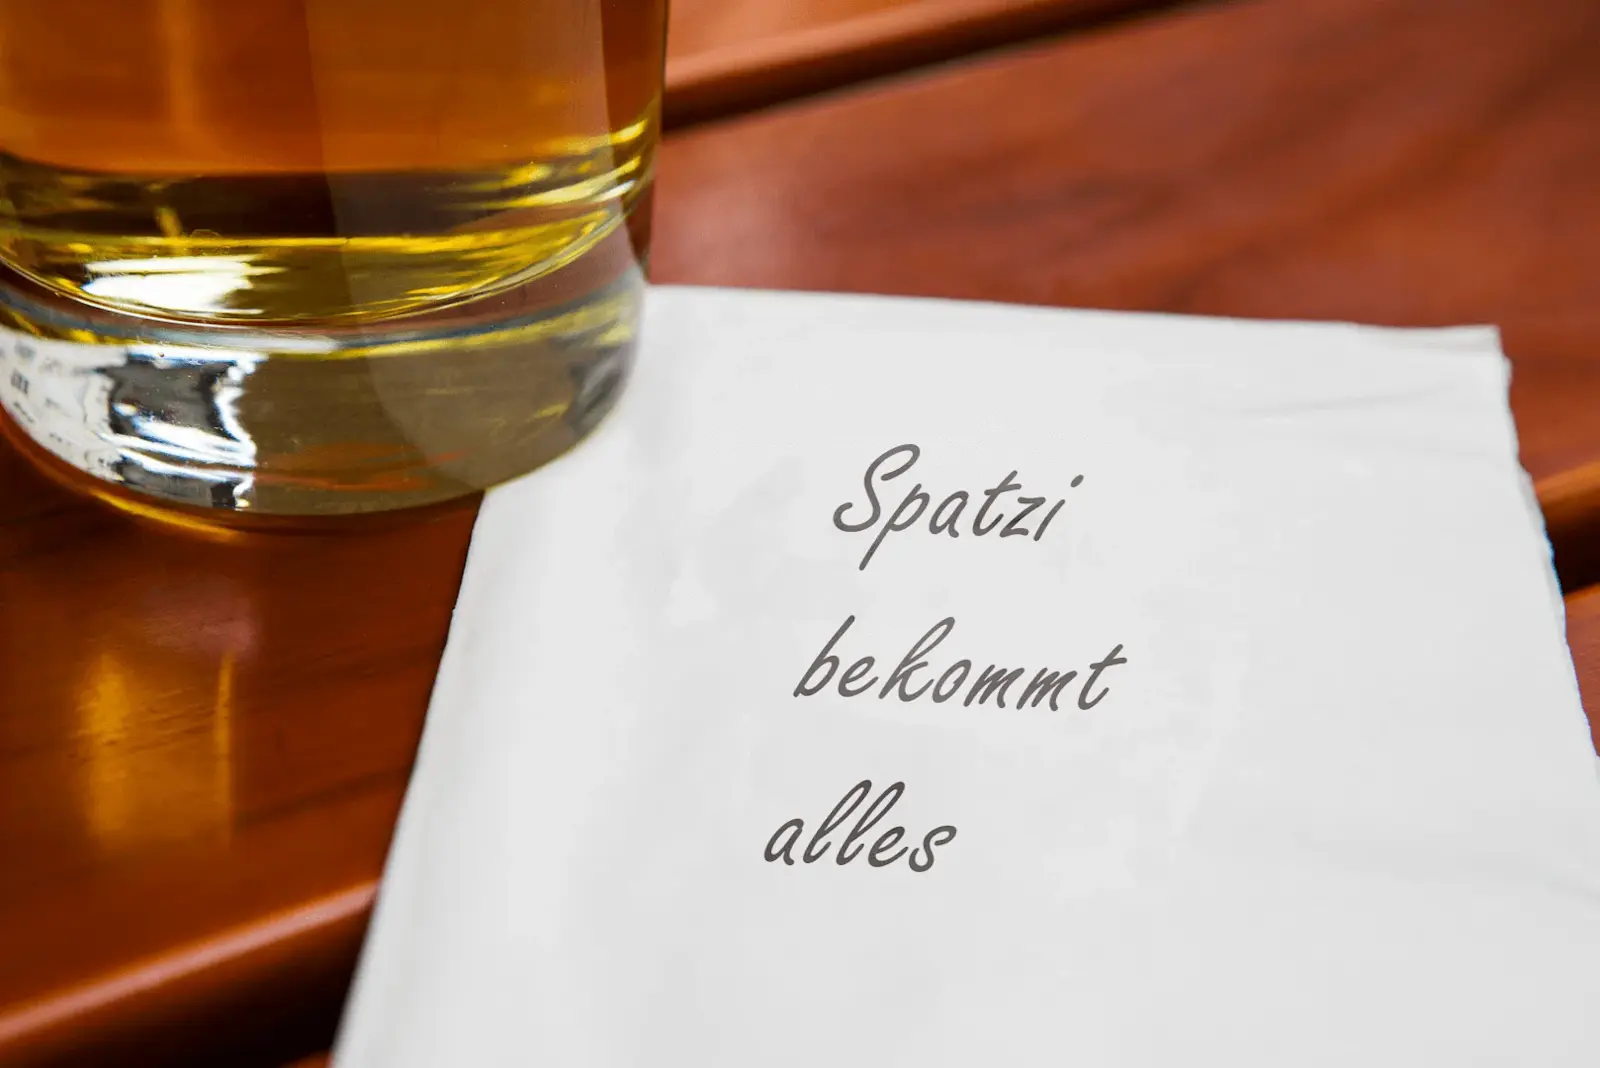 Spatzi
bekommt
alles